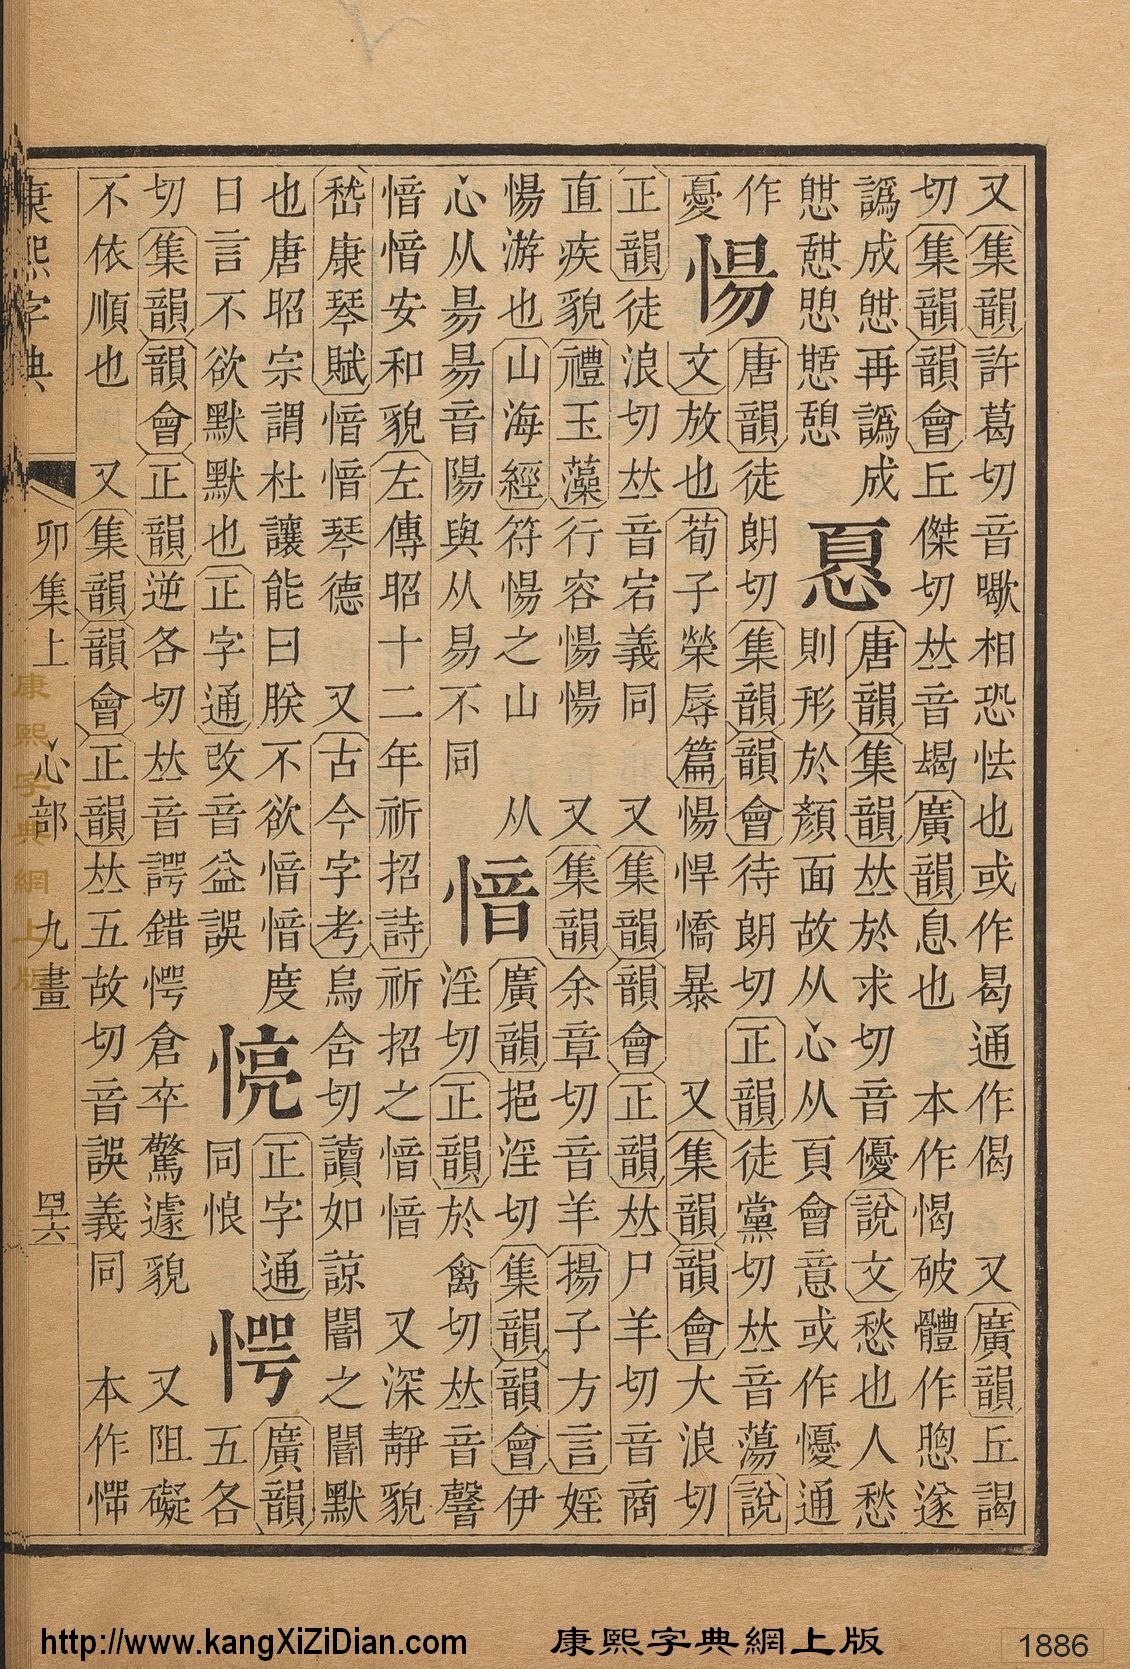 又集韻許葛切音嚱相恐怯也或作曷通作偈　又廣韻丘謁
切集韻韻會丘傑切𠀤音朅廣韻息也　本作愒破體作㥣遂
譌成㥍再譌成
惪　唐韻集韻𠀤於求切音優說文愁也人愁
則形於顏面故从心从頁會意或作懮通
作憂
愓　唐韻徒朗切集韻韻會待朗切正韻徒黨切𠀤音蕩說
文放也荀子榮辱篇愓悍憍暴　又集韻韻會大浪切
正韻徒浪切𠀤音宕義同　又集韻韻會正韻𠀤尸羊切音商
直疾貌禮玉藻行容愓愓　又集韻余章切音羊揚子方言婬
愓游也山海經符愓之山　从
心从昜昜音陽與从易不同
愔　廣韻挹淫切集韻韻會伊
淫切正韻於禽切𠀤音馨
愔愔安和貌左傳昭十二年祈招詩祈招之愔愔　又深靜貌
嵇康琴賦愔愔琴德　又古今字考烏舍切讀如諒闇之闇默
也唐昭宗謂杜讓能曰朕不欲愔愔度
日言不欲默默也正字通改音益誤
㤺　正字通
同悢
愕　廣韻五各
切集韻韻會正韻逆各切𠀤音諤錯愕倉卒驚遽貌　又阻礙
不依順也　又集韻韻會正韻𠀤五故切音誤義同　本作㦍
康熙字典　卯集上　心部　九畫　四六
康熙字典網上版
http://www.kangXiZiDian.com　康熙字典網上版　1886